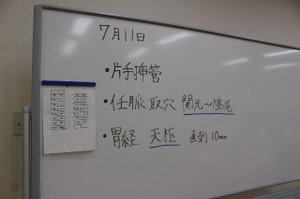 7月11日
・片手挿管
・任脈 取穴 関元～鳩尾
・胃経 天枢 直刺 10mm